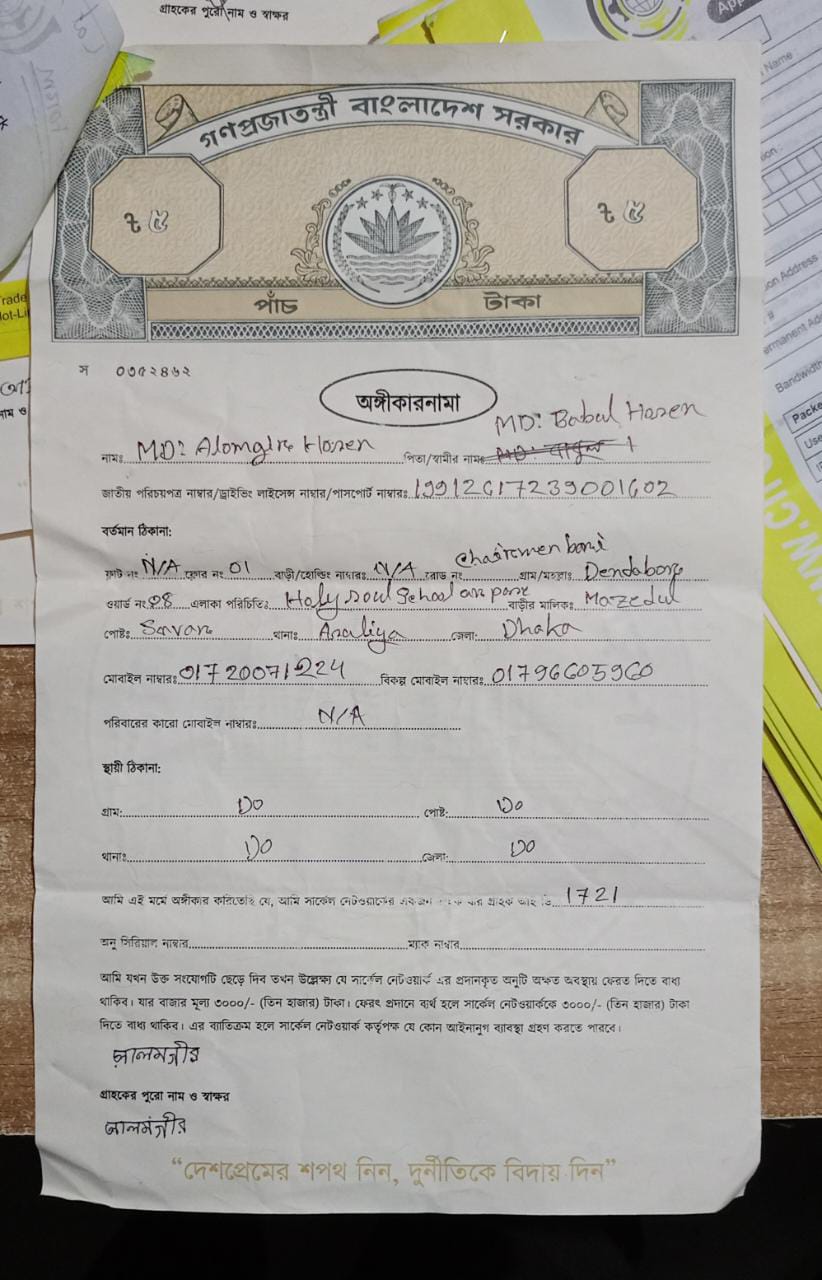 গ্রাহকের পুরো নাম ও স্বাক্ষর
গণপ্রজাতন্ত্রী বাংলাদেশ সরকার
৳ ৫
৳ ৫
পাঁচ টাকা
স ০৩৫২৪৬২
অঙ্গীকারনামা
MD: Babul Hosen
নামঃ MD: Alomgir Hosen পিতা/স্বামীর নামঃ
জাতীয় পরিচয়পত্র নাম্বার/ড্রাইভিং লাইসেন্স নাম্বার/পাসপোর্ট নাম্বারঃ 19912617239001602
বর্তমান ঠিকানা:
ফ্লাট নং N/A ফ্লোর নং 01 বাড়ী/হোল্ডিং নাম্বারঃ N/A রোড নং Chairmen bari গ্রাম/মহল্লাঃ Dendabor
ওয়ার্ড নং 08 এলাকা পরিচিতিঃ Holy soul School বাড়ীর মালিকঃ Mazedul
পোষ্টঃ Savar থানাঃ Asuliya জেলা: Dhaka
মোবাইল নাম্বারঃ 01720071224 বিকল্প মোবাইল নাম্বারঃ 01796605960
পরিবারের কারো মোবাইল নাম্বারঃ N/A
স্থায়ী ঠিকানা:
গ্রাম: Do পোষ্ট: Do
থানাঃ Do জেলা: Do
আমি এই মর্মে অঙ্গীকার করিতেছি যে, আমি সার্কেল নেটওয়ার্কের একজন গ্রাহক যার গ্রাহক আই ডি 1721
অনু সিরিয়াল নাম্বার ম্যাক নাম্বার
আমি যখন উক্ত সংযোগটি ছেড়ে দিব তখন উল্লেক্ষ্য যে সার্কেল নেটওয়ার্ক এর প্রদানকৃত অনুটি অক্ষত অবস্থায় ফেরত দিতে বাধ্য
থাকিব। যার বাজার মূল্য ৩০০০/- (তিন হাজার) টাকা। ফেরৎ প্রদানে ব্যর্থ হলে সার্কেল নেটওয়ার্ককে ৩০০০/- (তিন হাজার) টাকা
দিতে বাধ্য থাকিব। এর ব্যতিক্রম হলে সার্কেল নেটওয়ার্ক কর্তৃপক্ষ যে কোন আইনানুগ ব্যবস্থা গ্রহণ করতে পারবে।
আলমগীর
গ্রাহকের পুরো নাম ও স্বাক্ষর
আলমগীর
“দেশপ্রেমের শপথ নিন, দুর্নীতিকে বিদায় দিন”